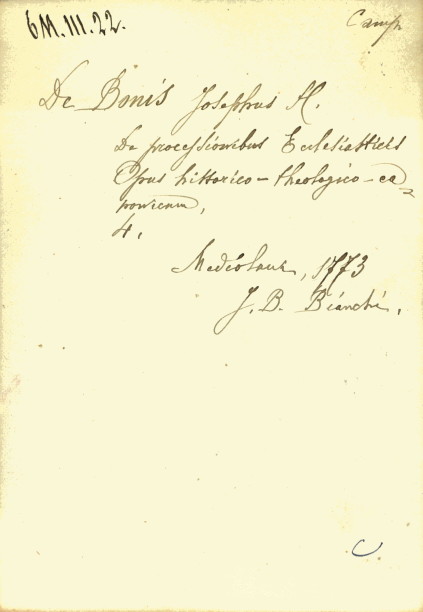 6M.III.22.
Camp
De Bonis Josephus M.
De processionibus Ecclesiasticis
Opus historico-theologico-ca=
nonicum,
4.
Mediolani, 1773
J. B. Bianchi.
C